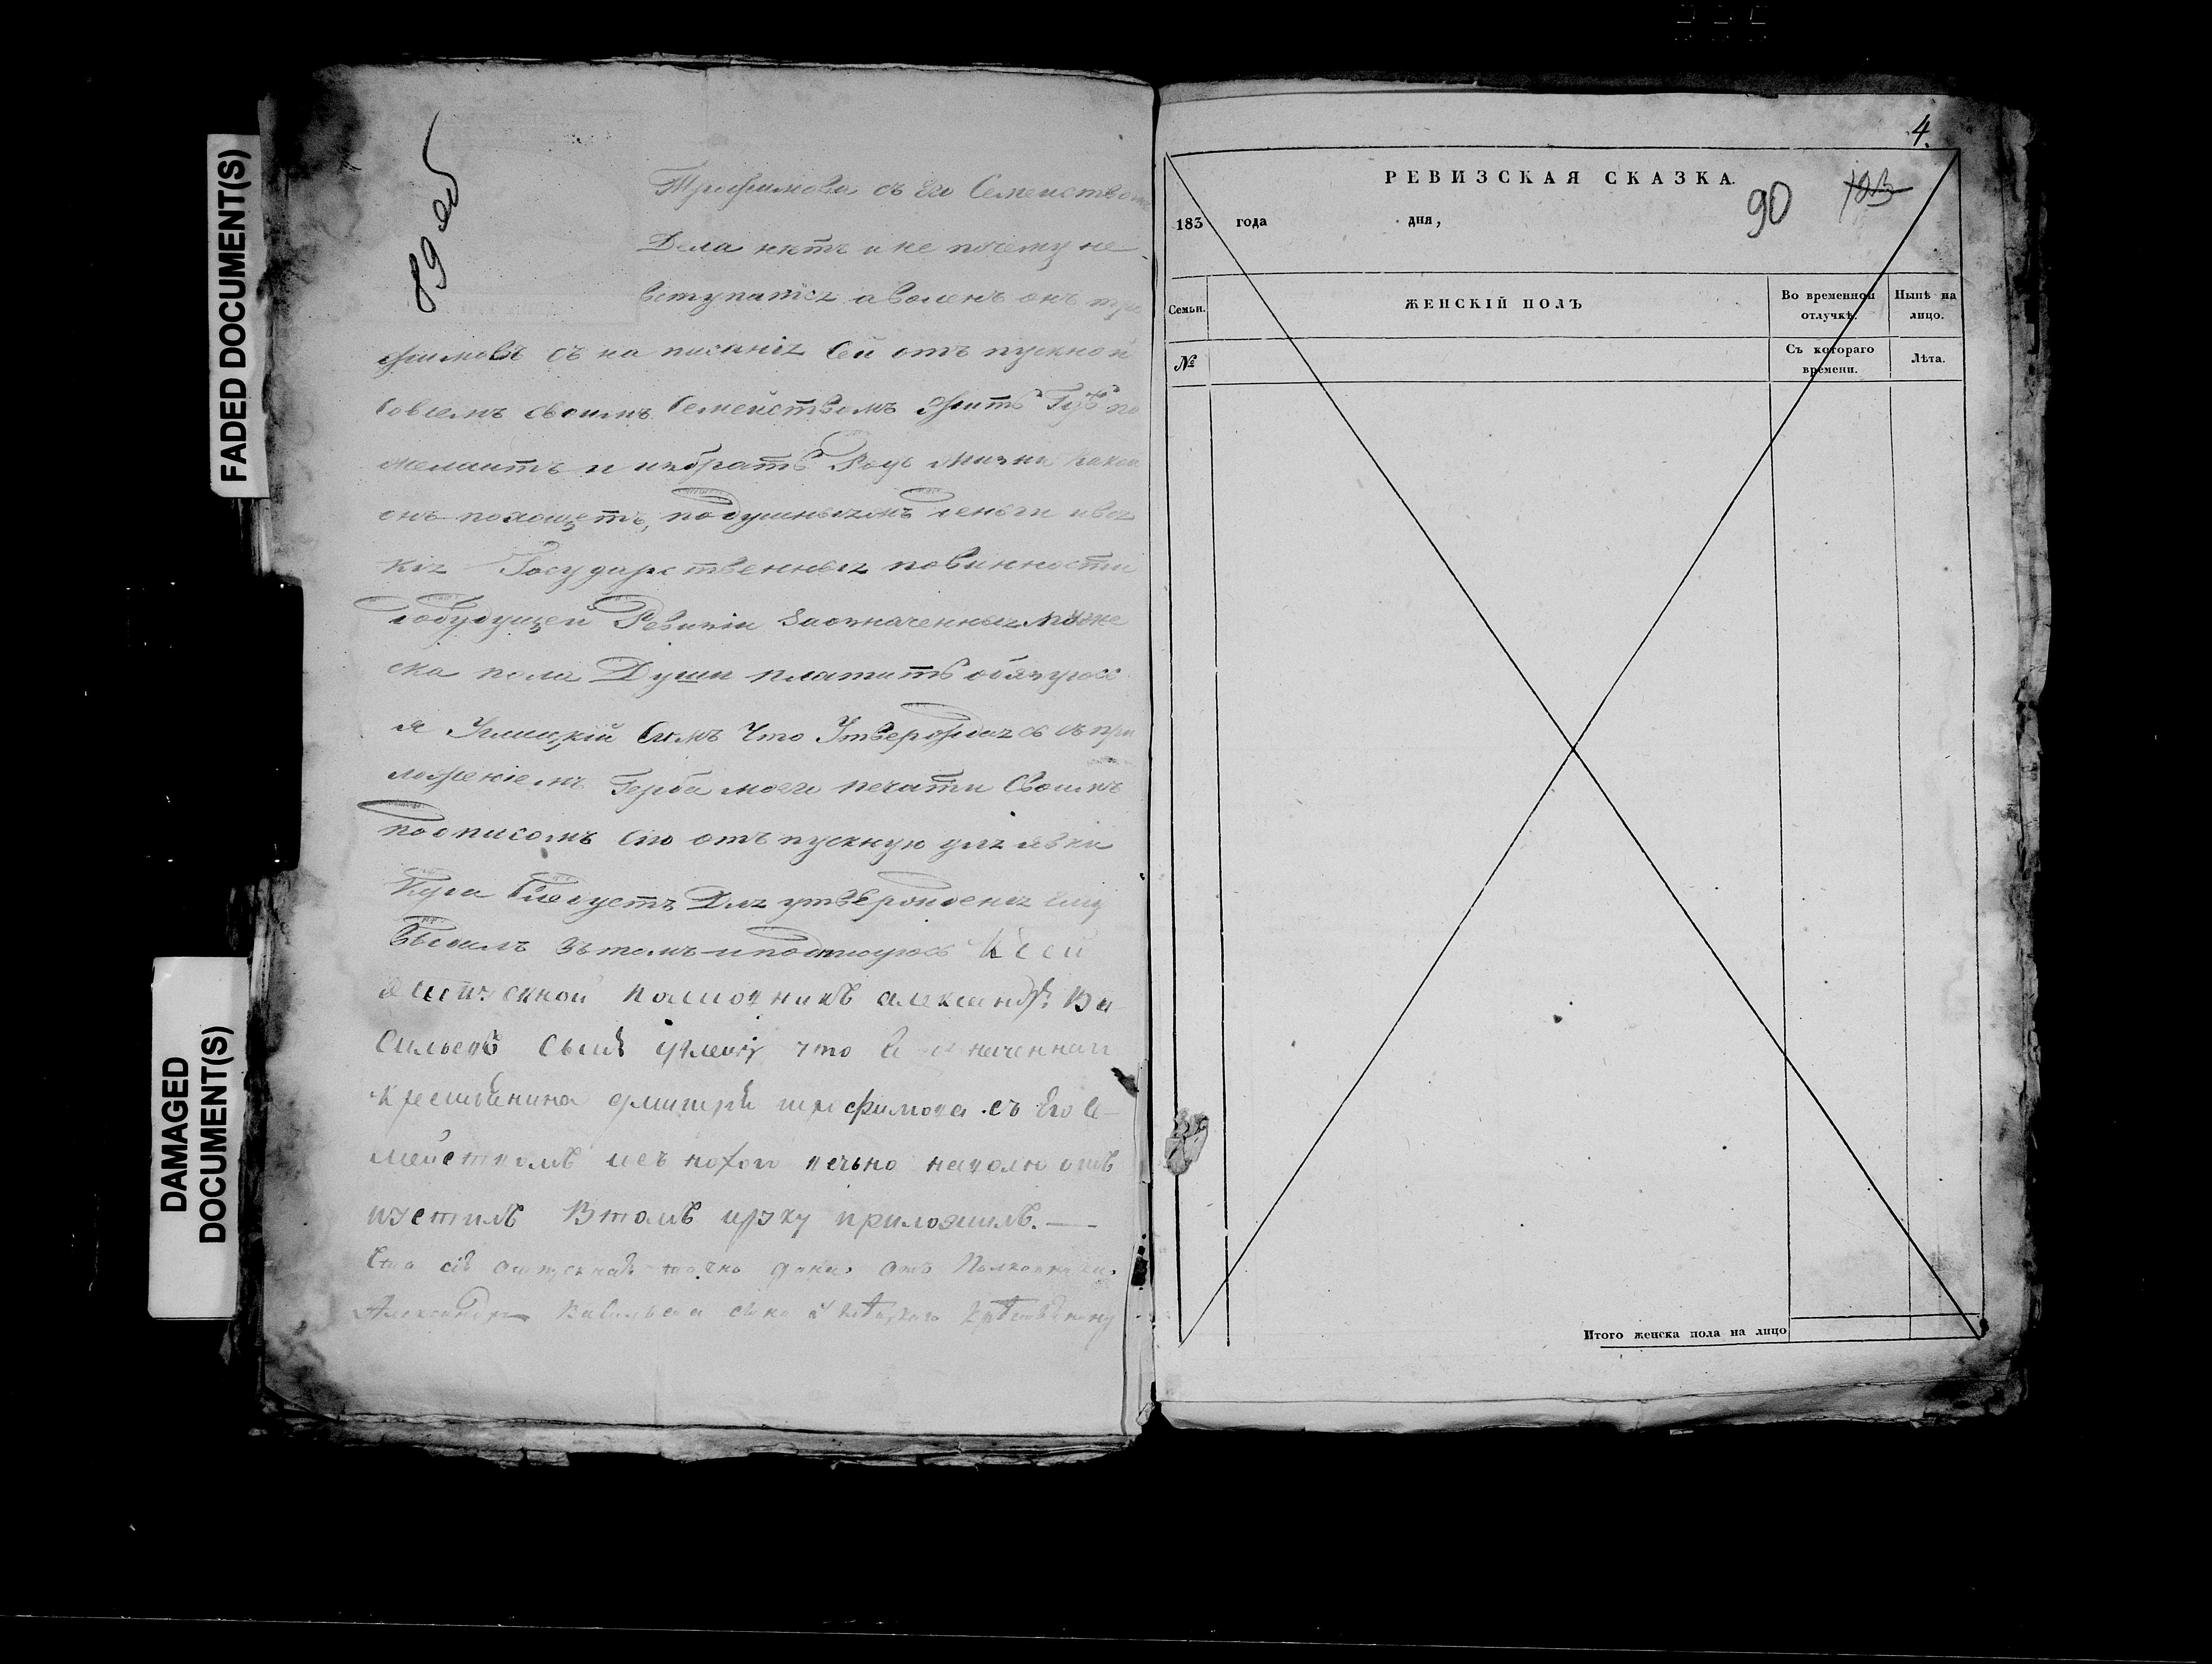 FADED DOCUMENT(S)
DAMAGED
DOCUMENT(S)
89 об
Трофимова съ Его Семействомъ
Дела нѣтъ и не почему не
вступатся а воленъ онъ тро
фимовъ съ на писанія сей отъ пускной
совсемъ своимъ Семействомъ жить Гдѣ по
желаитъ и избрать Родъ жизни какой
онъ похощетъ, подушныя деньги и вся
кія Государственныя повинности
добудущей Ревизіи Заозначенныя муже
ска пола Души платить обязуюсь
я Улицкій Самъ Что Утверждая съ при
ложеніемъ Герба моего печати Своимъ
подписомъ Сію отъпускную для явки
Куда Следуетъ Для утвержденія ему
въ томъ и подписуюсь К сей
Отпускной Полковникъ александръ Ва
сильевъ Сынъ что
крестьянина дмитрія трофимова съ Его Се
мействомъ вечьно наволю отъ
пустилъ Втомъ ируку приложилъ.
Что сія отпускная точно дана отъ Полковника
Александра Васильева сына крестьянину
4.
РЕВИЗСКАЯ СКАЗКА.
90
183 года дня,
Семьи. ЖЕНСКІЙ ПОЛЪ Во временной отлучкѣ. Нынѣ на лицо.
№ Съ котораго времени. Лѣта.
Итого женска пола на лицо